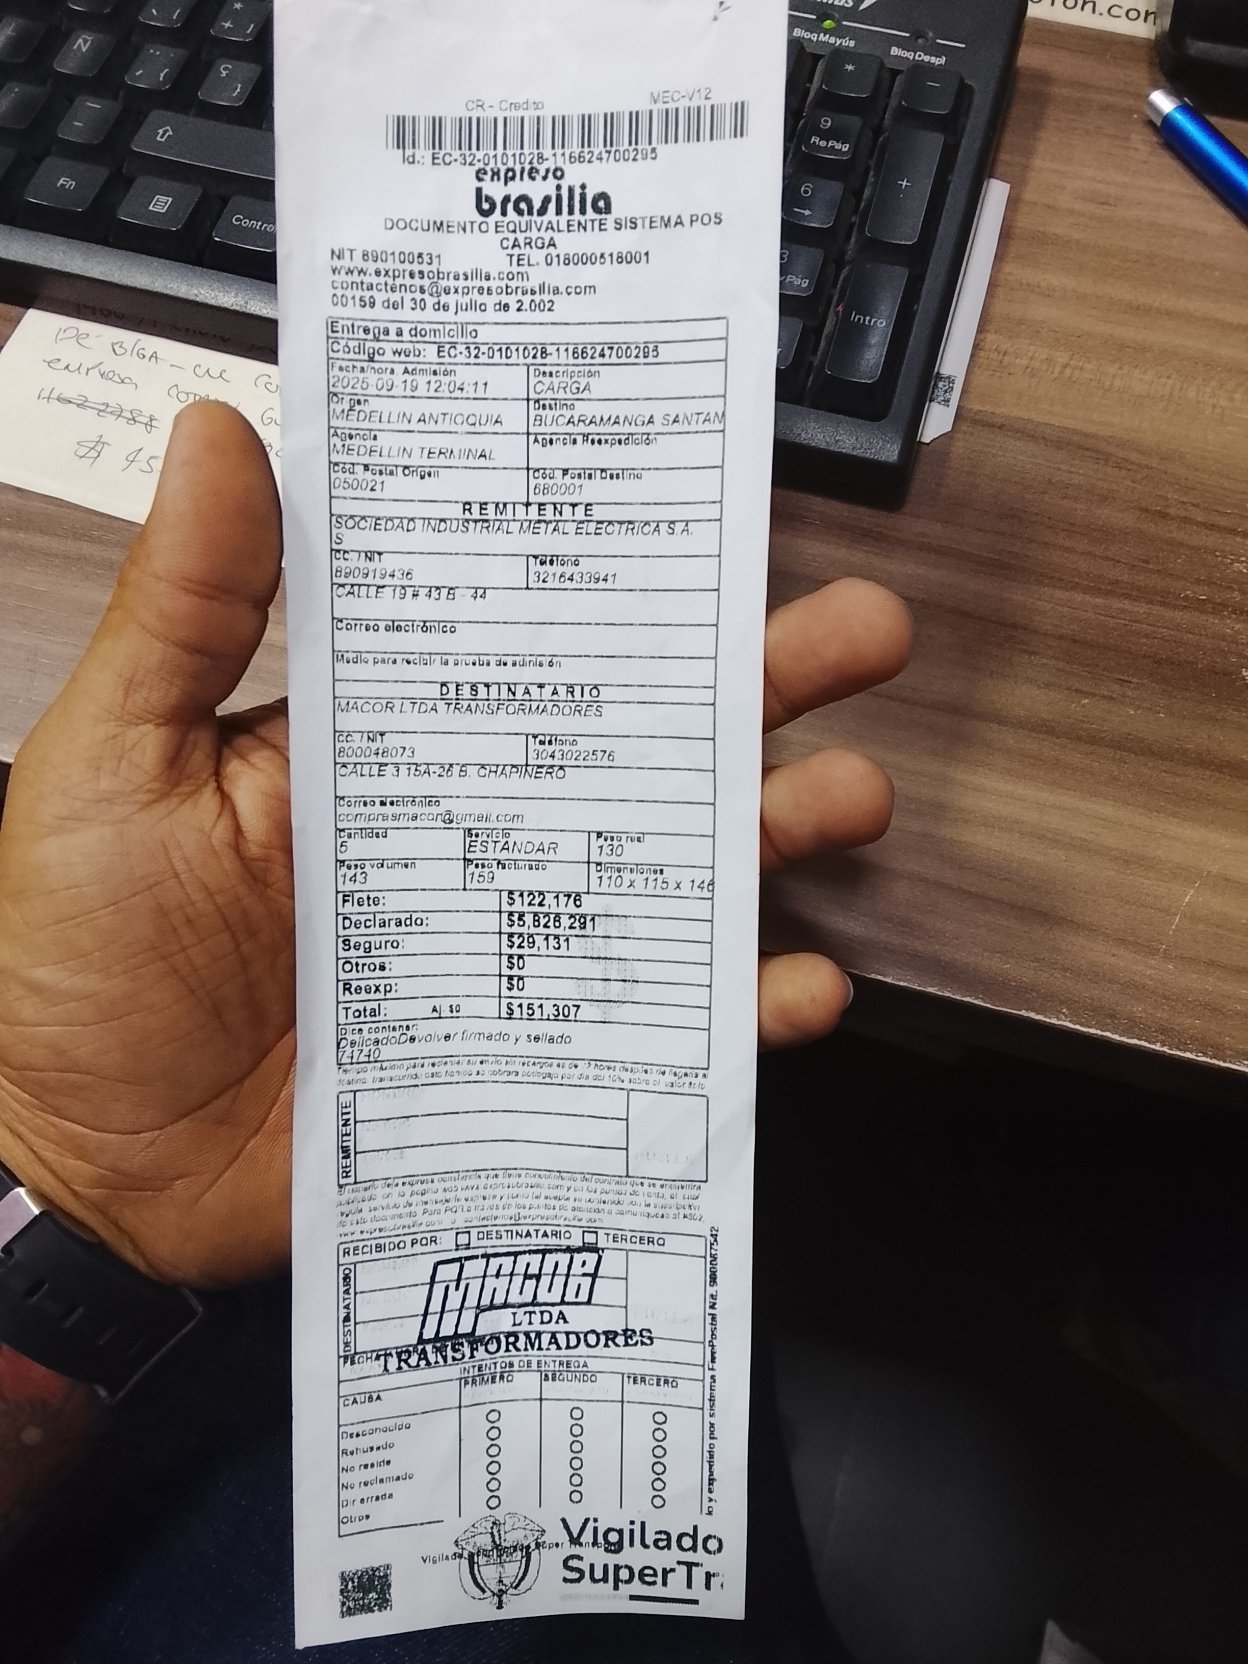 CR - Credito MEC-V12
Id.: EC-32-0101028-116624700295
expreso
brasilia
DOCUMENTO EQUIVALENTE SISTEMA POS
CARGA
NIT 890100531 TEL. 018000518001
www.expresobrasilia.com
contactenos@expresobrasilia.com
00159 del 30 de julio de 2.002
Entrega a domicilio
Código web: EC-32-0101028-116624700295
Fecha/hora Admisión Descripción
2025-09-19 12:04:11 CARGA
Origen Destino
MEDELLIN ANTIOQUIA BUCARAMANGA SANTAN
Agencia Agencia Reexpedición
MEDELLIN TERMINAL
Cód. Postal Origen Cód. Postal Destino
050021 680001
REMITENTE
SOCIEDAD INDUSTRIAL METAL ELECTRICA S.A.
S
CC. / NIT Teléfono
890919436 3216433941
CALLE 19 # 43 B - 44
Correo electrónico
Medio para recibir la prueba de admisión
DESTINATARIO
MACOR LTDA TRANSFORMADORES
CC. / NIT Teléfono
800048073 3043022576
CALLE 3 15A-26 B. CHAPINERO
Correo electrónico
comprasmacor@gmail.com
Cantidad Servicio Peso real
5 ESTANDAR 130
Peso volumen Peso facturado Dimensiones
143 159 110 x 115 x 146
Flete: $122,176
Declarado: $5,826,291
Seguro: $29,131
Otros: $0
Reexp: $0
Total: Aj. $0 $151,307
Dice contener:
DelicadoDevolver firmado y sellado
74740
REMITENTE
RECIBIDO POR: DESTINATARIO TERCERO
DESTINATARIO
MACOR
LTDA
TRANSFORMADORES
FECHA
INTENTOS DE ENTREGA
CAUSA PRIMERO SEGUNDO TERCERO
Desconocido
Rehusado
No reside
No reclamado
Dir errada
Otros
lo y expedido por sistema FirePostal Nit. 900087542
Vigilado
SuperTr
Bloq Mayús
Bloq Despl
9
RePág
6
3
Pág
Intro
Fn
Control
Ñ
Ç